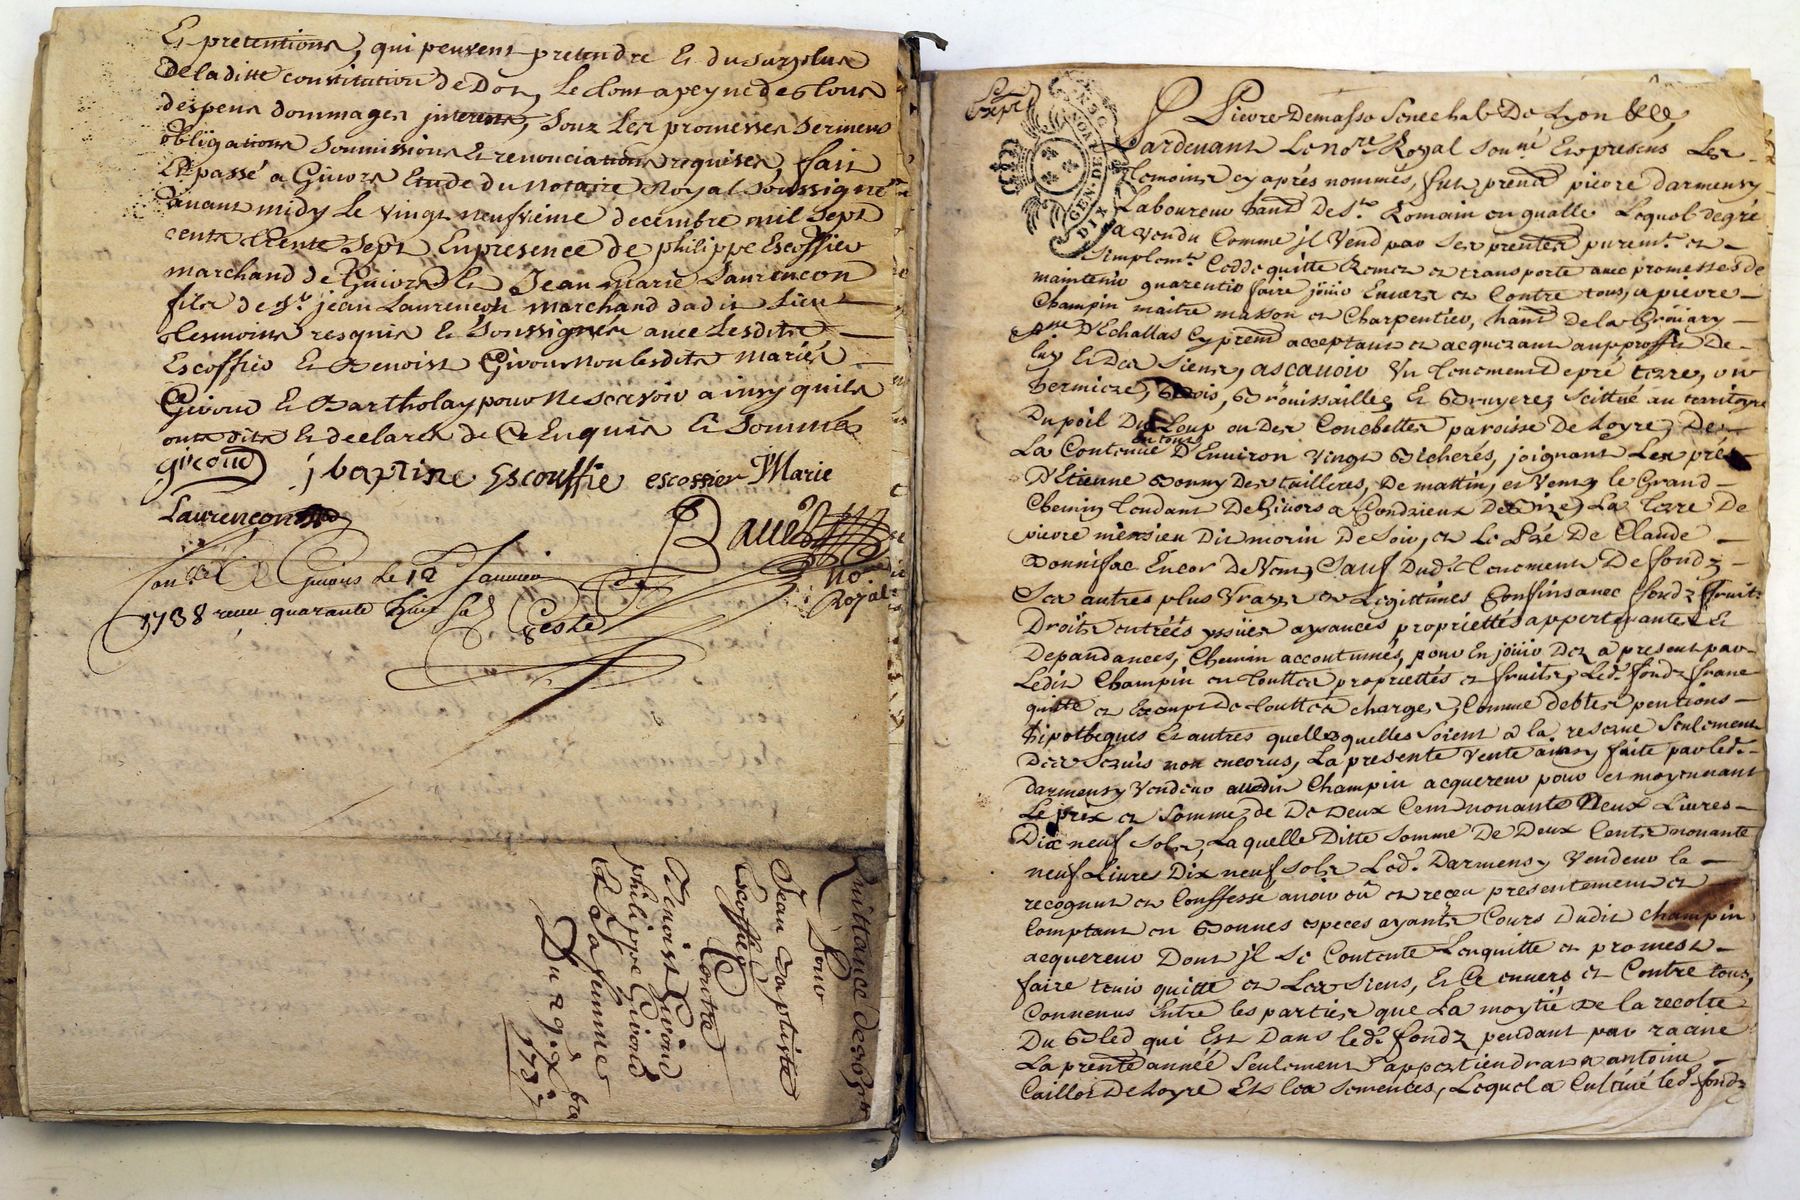 Et pretentions, qui peuvent pretendre Et du surplus
de laditte constitution de Dot, Le dont a peyne de tous
despens dommages interests, Souz Les promesses Serments
obligations Soumissions Et renonciations requises, fait
Et passé a Givors Etude du Notaire Royal Soussigné
avant midy Le vingt neufvieme decembre mil Sept
cents trente Sept En presence de philippe Escoffier
marchand de Givors Et Jean Marie Laurencon
fils de Sr. jean Laurencon marchand dudit Lieu
tesmoins requis Et Soussignés avec Lesdits
Escoffier Et Benoist Giroud non Lesdits mariés
Givord Et Bartholay pour ne scavoir ainsy quils
ont dit Et declaré de Ce Enquis Et Sommés
giroud j baptiste Escouffie escossier JMarie
Laurencon
Bavet
No.
Royal
Con.lé A Givors Le 12 Janvier
1738 receu quarante huit sols
Quittance de
Pour
Jean Baptiste
Escoffier
Contre
Benoist Giroud
philippe Givord
Et sa femme
Du 29e. xbre
1737
Pierre Demasso Senechal De Lyon &&
Pardevant Le Nore. Royal Sousné Et presens Les
Temoins cy aprés nommés, fut prent pierre darmensy
Laboureur hant De St. Romain en qualle Lequel de gré
a Vendu Comme jl Vend par Ses prentes puremt. et
Simplemt. Cedde quitte Remet et transporte avec promesses de
maintenir garentir faire jouir Envers et Contre tous, a pierre
Champin maitre masson et Charpentier, hant de la
psse D'Echallas Cy prent acceptant et acquerant au proffit De
luy Et Des Siens, ascavoir Un tenement de pré terre,
hermieze, Bois, Brouissailles Et Bruyeres Scittué au territoyre
Du poil Du Loup ou Des Conchettes paroisse De Loyre, De
en tout
La Contenue D'Environ Vingt Bicherés, joignant Les prés
D'Etienne Bonny Des taillieres, De mattin, et Vent, le Grand
Chemin tendant De Givors a Condrieux De Bize, La terre De
pierre mersieu Dit morin De Soir, et Le Pré De Claude
Bonnifac Encor De Vent, Sauf Dudt. tenement De fondz
Ses autres plus Vrays et Legittimes Confins avec fondz fruits
Droits entréés yssües aysances propriettés appertenantes Et
Dependances, Chemin accoutumés, pour En jouir Dez a present par
Ledit Champin en touttes propriettés et fruits, Led. fondz franc
quitte et Exempt De touttes charges, Comme debtes pentions
hipotheques Et autres quelles quelles Soient a la reserve Seulement
Des Servis non encorus, La presente Vente ainsy faite par led.
darmensy Vendeur audit Champin acquereur pour et moyennant
Le prix et Somme de De Deux Cent nonante Neuf Livres
Dix neuf sols, Laquelle Ditte Somme De Deux Cents nonante
neuf Livres Dix neuf sols Led. Darmensy Vendeur la
recognut et Conffessé avoir eû et reçeu presentement et
Comptant en Bonnes especes ayants Cours Dudit Champin
acquereur Dont jl Se Contente Lenquitte et promest
faire tenir quitte et Les Siens, Et Ce envers et Contre tous,
Convenus Entre les parties que La moytié De la recolte
Du Bled qui Est Dans led. fondz pendant par racine
La prente année Seulement appertiendrat a antoine
Caillot De Loyre Et les Semences, Lequel a Cultivé led. fondz